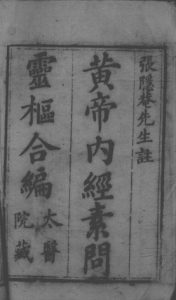 張隱菴先生註
黃帝內經素問
靈樞合編
太醫
院藏